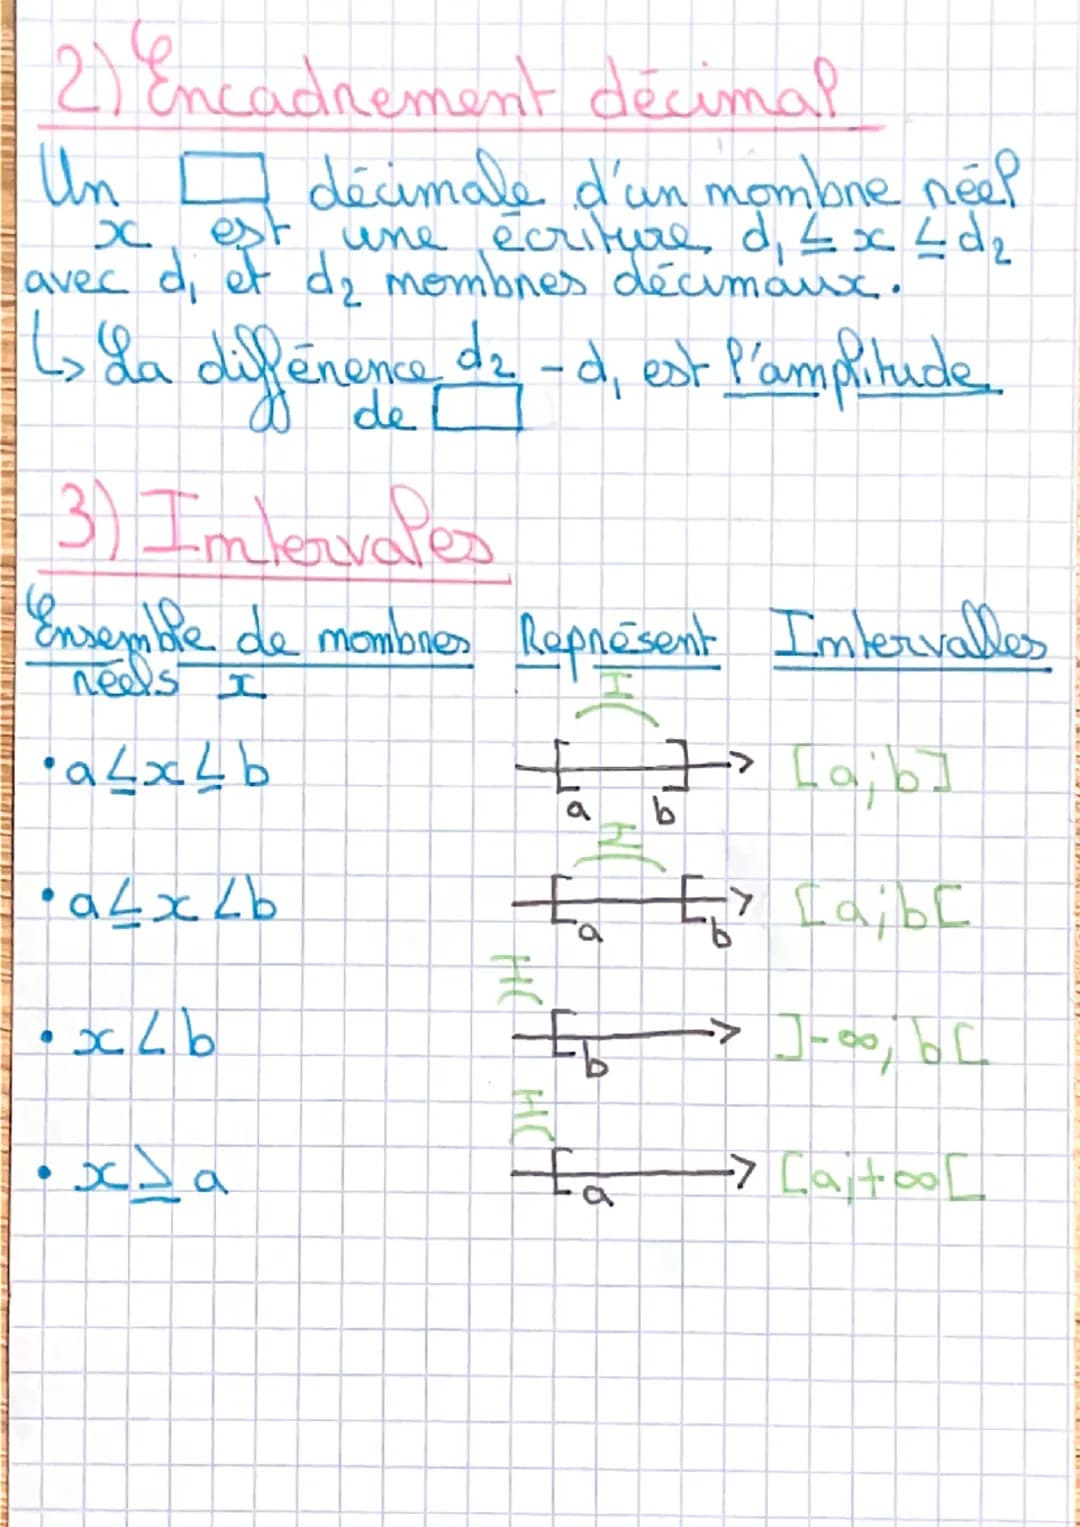 2) Encadrement décimal
Un □ décimale d'un nombre réel
x est une écriture d₁ ≤ x ≤ d₂
avec d₁ et d₂ nombres décimaux.
↳ La différence d₂ - d₁ est l'amplitude
de □
3) Intervales
Ensemble de nombres Représent Intervalles
réels x
I
• a ≤ x ≤ b [a;b]
a b
I
• a ≤ x < b [a;b[
a b
I
• x < b ]-∞; b[
b
I
• x ≥ a [a;+∞[
a